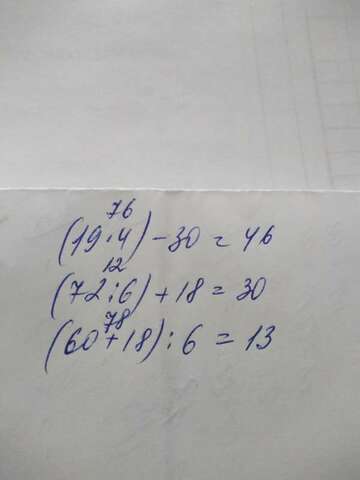 76
(19·4) - 30 = 46
12
(72:6) + 18 = 30
78
(60+18) : 6 = 13